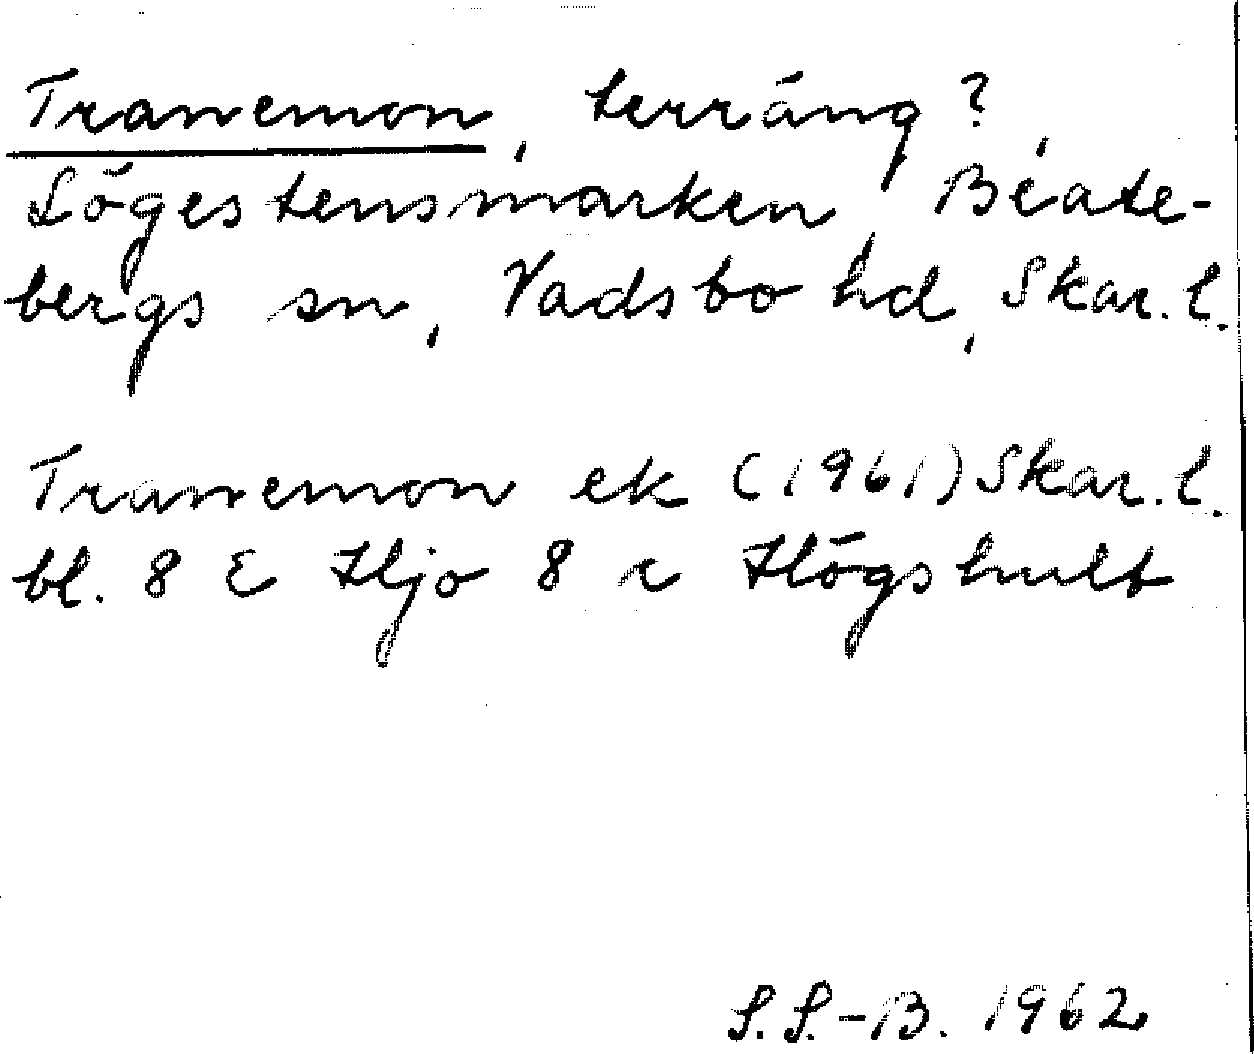 Tranemon, terräng?,
Sögestensmarken, Beate-
bergs sn, Vadsbo hd, Skar. l.
Tranemon ek (1961) Skar. l.
bl. 8 E Hjo 8 c Högshult
S.S.-B. 1962